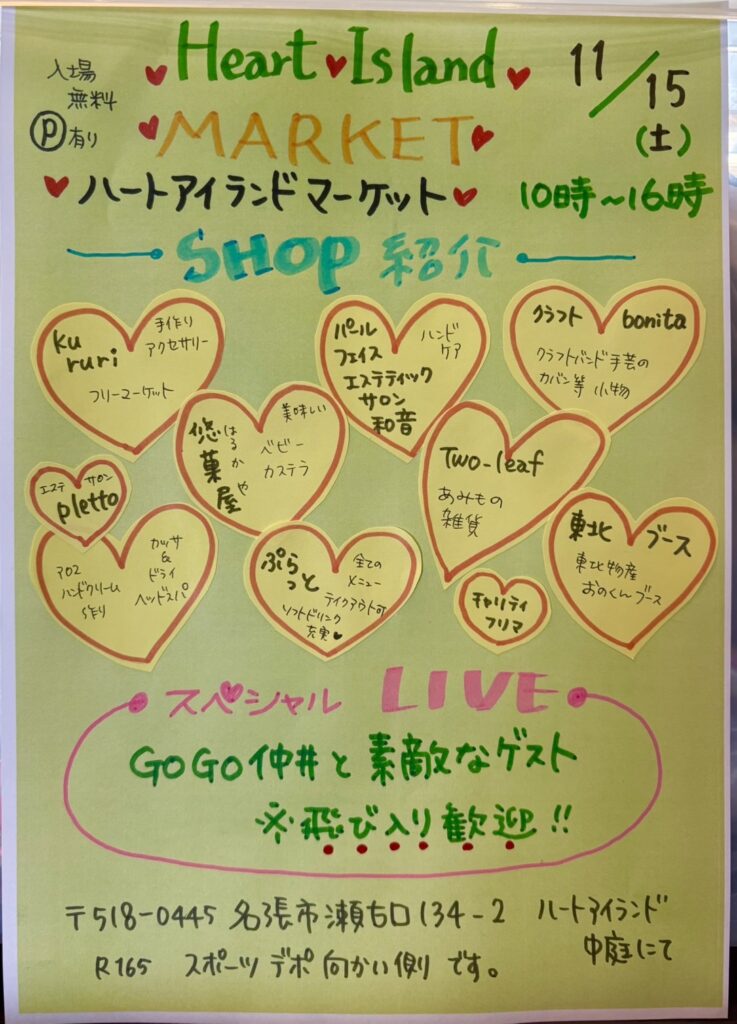 入場
無料
Ⓟ有り
Heart Island
MARKET
ハートアイランドマーケット
11/15
(土)
10時〜16時
SHOP 紹介
ku
ruri
手作り
アクセサリー
フリーマーケット
パール
フェイス
エステティック
サロン
和音
ハンド
ケア
クラフト bonita
クラフトバンド手芸の
カバン等 小物
悠菓屋
はるかや
美味しい
ベビー
カステラ
Two-leaf
あみもの
雑貨
エステ サロン
pletto
アロマ
ハンドクリーム
作り
カッサ
&
ドライ
ヘッドスパ
ぷらっと
全ての
メニュー
テイクアウト可
ソフトドリンク
充実♥
チャリティ
フリマ
東北 ブース
東北物産
おのくんブース
スペシャル LIVE
GoGo仲井と素敵なゲスト
※飛び入り歓迎!!
〒518-0445 名張市瀬古口134-2 ハートアイランド
中庭にて
R165 スポーツデポ向かい側りです。